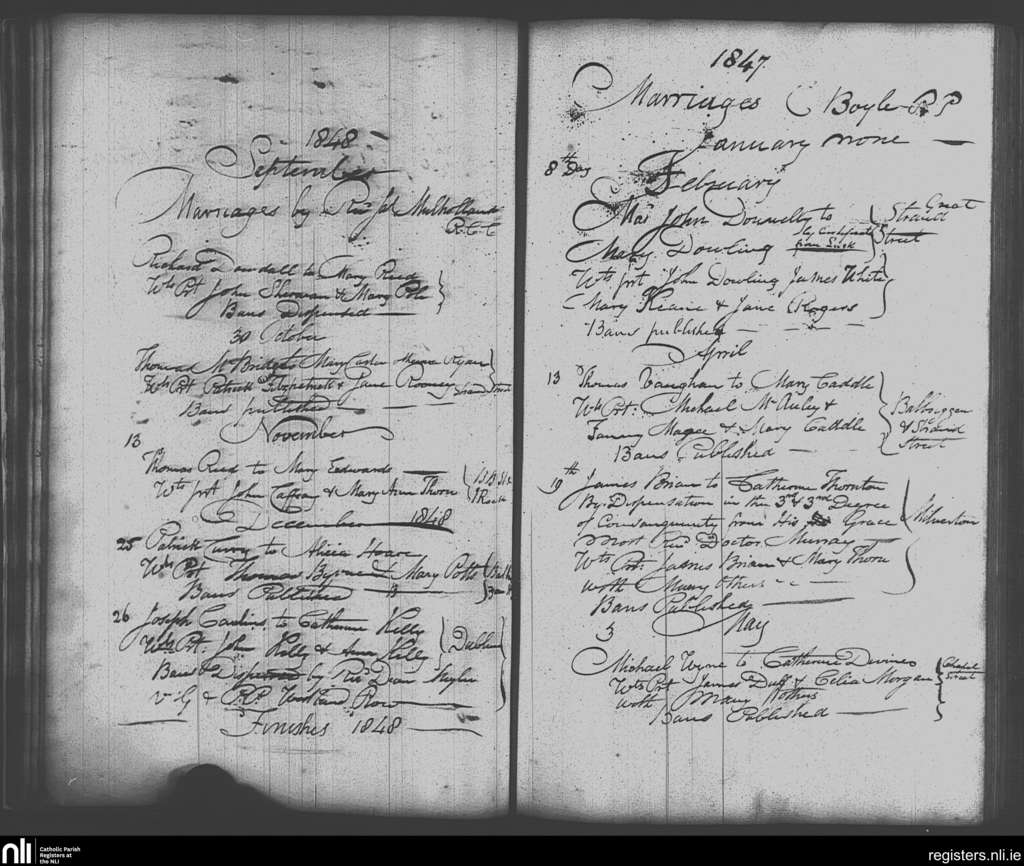 1848
September
Marriages by Revd Jas Mulholland
R.C.C
Richard Dowdall to Mary Reed
Wts Prt John Sherwan & Mary Pole
Bans Dispensed
30 October
Thomas McBride to Mary Carten
Wts Prt Patrick Fitzpatrick & Jane Rooney Strand Street
Bans published
November
13
Thomas Reed to Mary Eadwards
Wts prt John Caffrau & Mary Ann Thorn
December 1848
25 Patrick Curry to Alicia Hoare
Wts Prt Thomas Byrne & Mary Potts
Bans Published
26 Joseph Carlins to Catherine Kelly Dublin
Wts Prt: John Kelly & Anne Kelly
Bans Dispensed by Revd Dean Meyler
V G & P.P. Westland Row
Finishes 1848
1847
Marriages C Boyle P P
January none
8th Day
February
John Donnelly to Great Strand Street
Mary Dowling by Certificate from Lusk
Wts prt John Dowling James White
Mary Keane & Jane Rogers
Bans published
April
13 Thomas Vaughan to Mary Caddle
Wts Prt: Michael McAuley & Balbriggan
Fanny Magee & Mary Caddle & Strand Street
Bans Published
19th James Brian to Catherine Thornton
By Dispensation in the 3rd & 3rd Degree
of Consanguinity from His Grace Kilverton
Most Revd Doctor Murray
Wts Prt: James Brian & Mary Thorn
with Many Others
Bans Published
3 May
Michael Wyne to Catherine Devine Chapel Street
Wts Prt James Duff & Celia Morgan
with Many Others
Bans Published
nli
Catholic Parish
Registers at
the NLI
registers.nli.ie